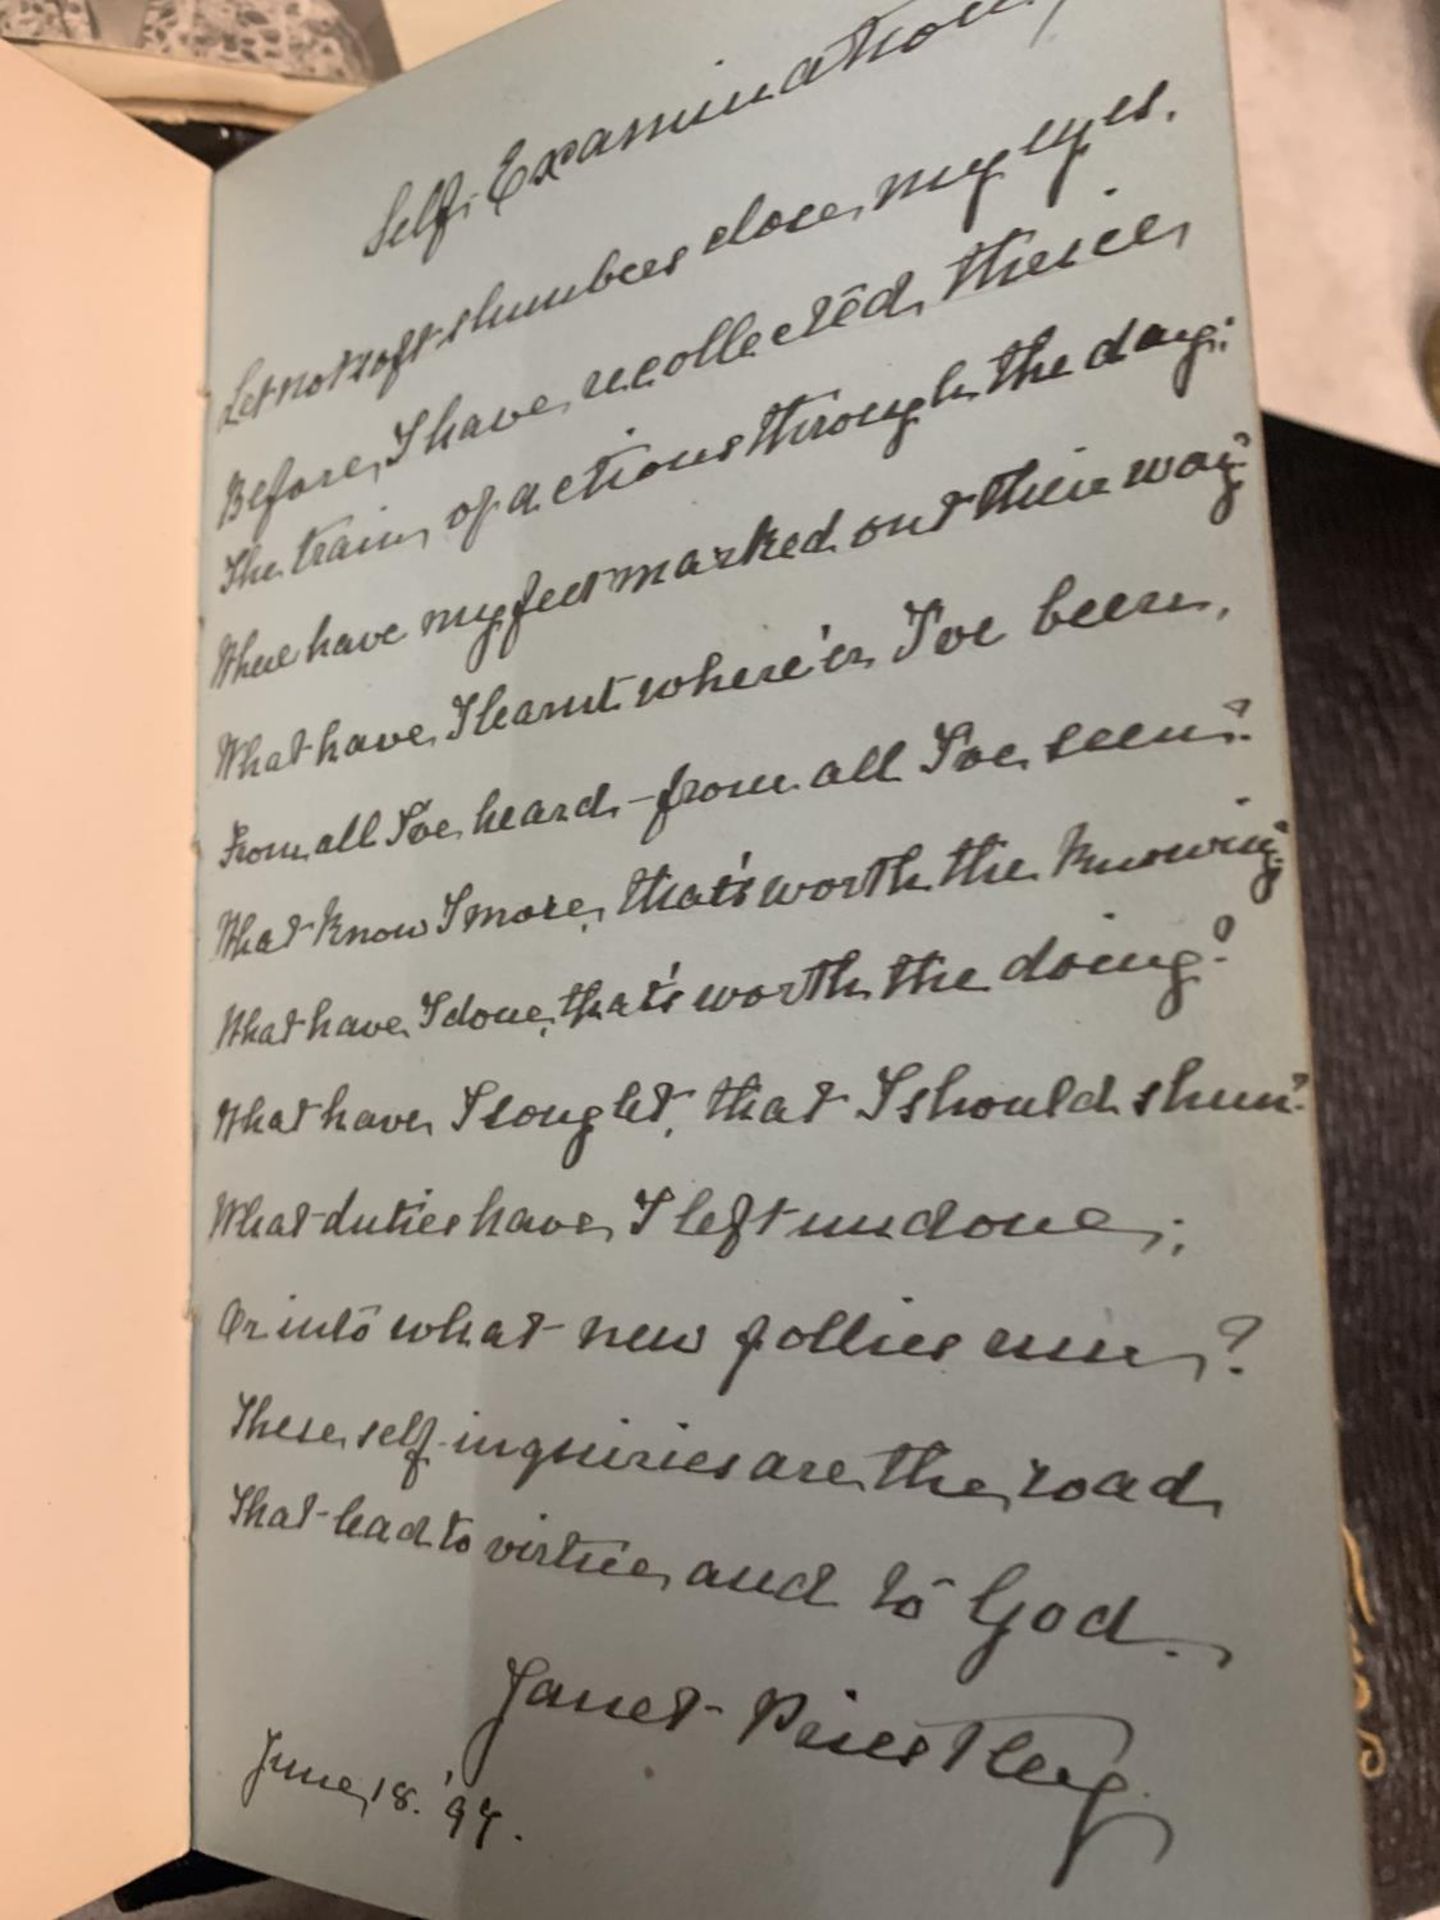 Self-Examination
Let not soft slumbers close my eyes.
Before I have recollected thrice
The train of actions through the day:
Where have my feet marked out their way?
What have I learnt where'er I've been,
From all I've heard - from all I've seen?
What know I more, that's worth the knowing?
What have I done, that's worth the doing?
What have I sought, that I should shun?
What duties have I left undone;
Or into what new follies run?
These self-inquiries are the road
That lead to virtue and to God.
Janet Priestley
June 18. '97.